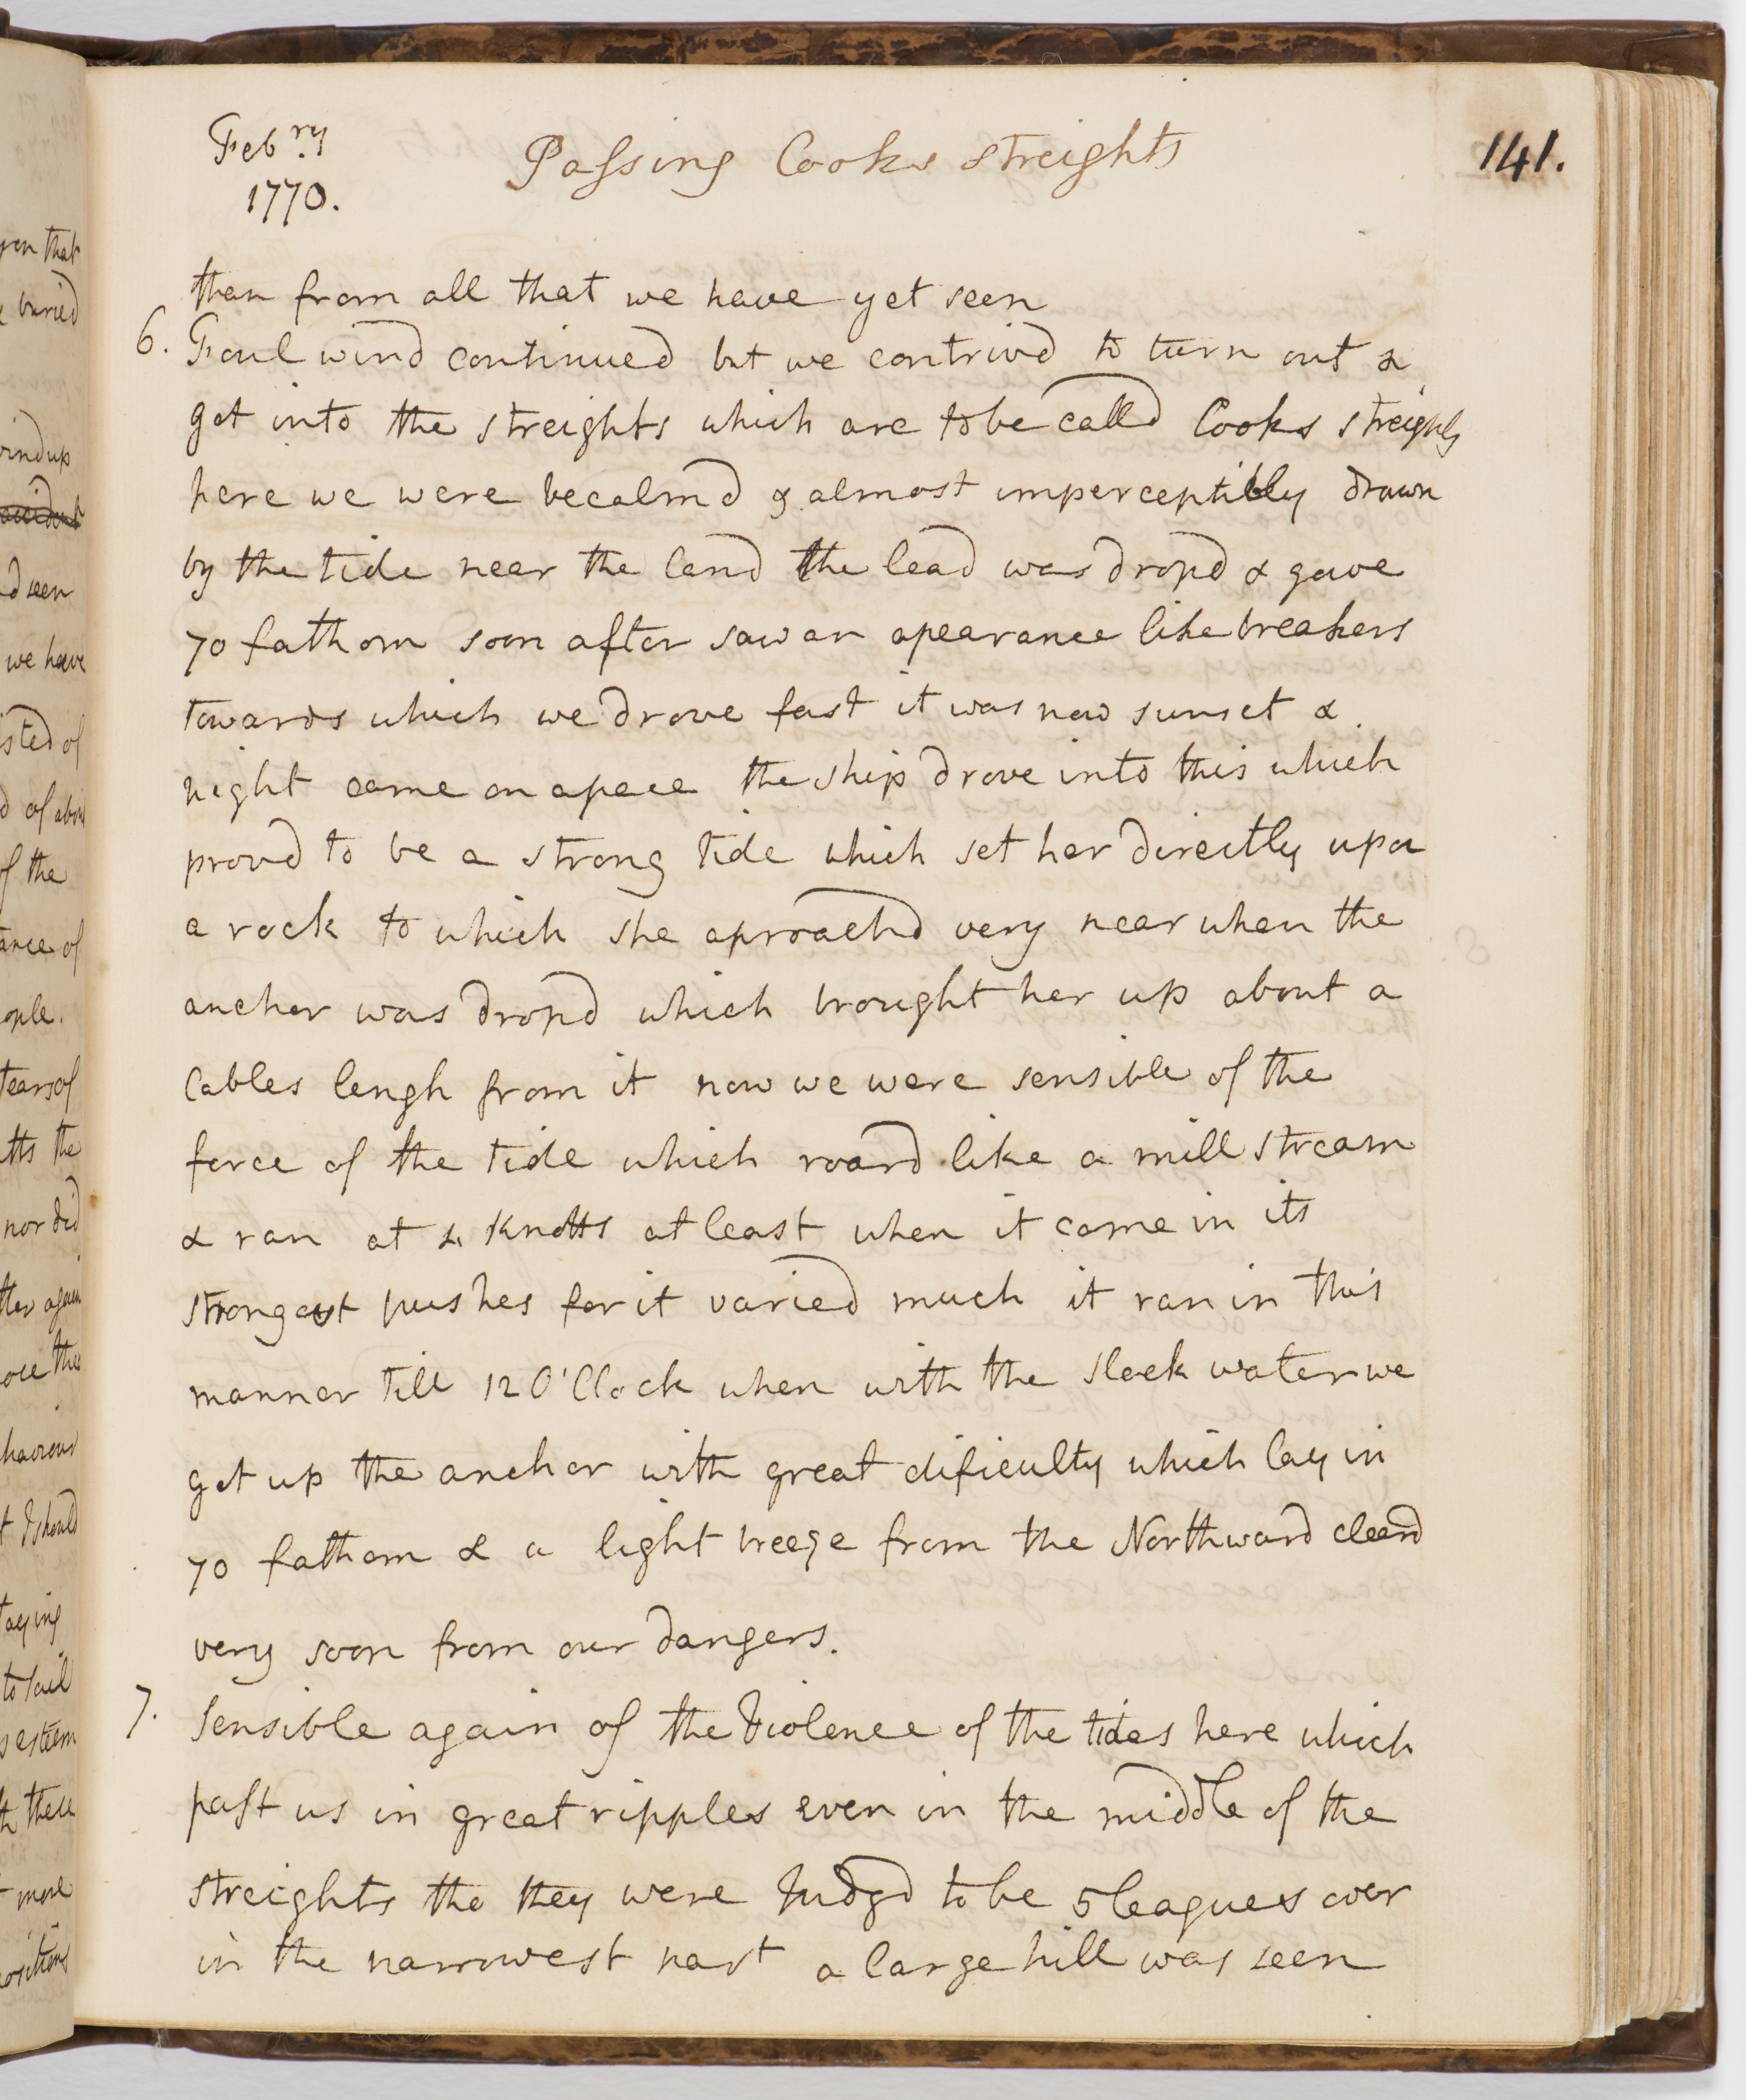 Febry
1770.
Passing Cooks streights
141.
than from all that we have yet seen
6. Foul wind continued but we contrivd to turn out &
get into the streights which are to be calld Cooks streights
here we were becalmd & almost imperceptibly drawn
by the tide near the land the lead was dropd & gave
70 fathom soon after saw an apearance like breakers
towards which we drove fast it was now sunset &
night came on apace the ship drove into this which
provd to be a strong tide which set her directly upon
a rock to which she aproachd very near when the
anchor was dropd which brought her up about a
Cables lengh from it now we were sensible of the
force of the tide which roard like a mill stream
& ran at 4 Knotts at least when it came in its
strongest pushes for it varied much it ran in this
manner till 12 O'Clock when with the slack water we
got up the anchor with great dificulty which lay in
70 fathom & a light breeze from the Northward cleard
very soon from our dangers.
7. Sensible again of the Violence of the tides here which
past us in great ripples even in the middle of the
streights tho they were Judgd to be 5 leagues over
in the narrowest part a large hill was seen
yon that
buried
wind up
d seen
we have
isted of
d of about
of the
ance of
ople.
tears of
tts the
nor did
tter again
haviour
t I should
taying
to sail
s esteem
more
ositions